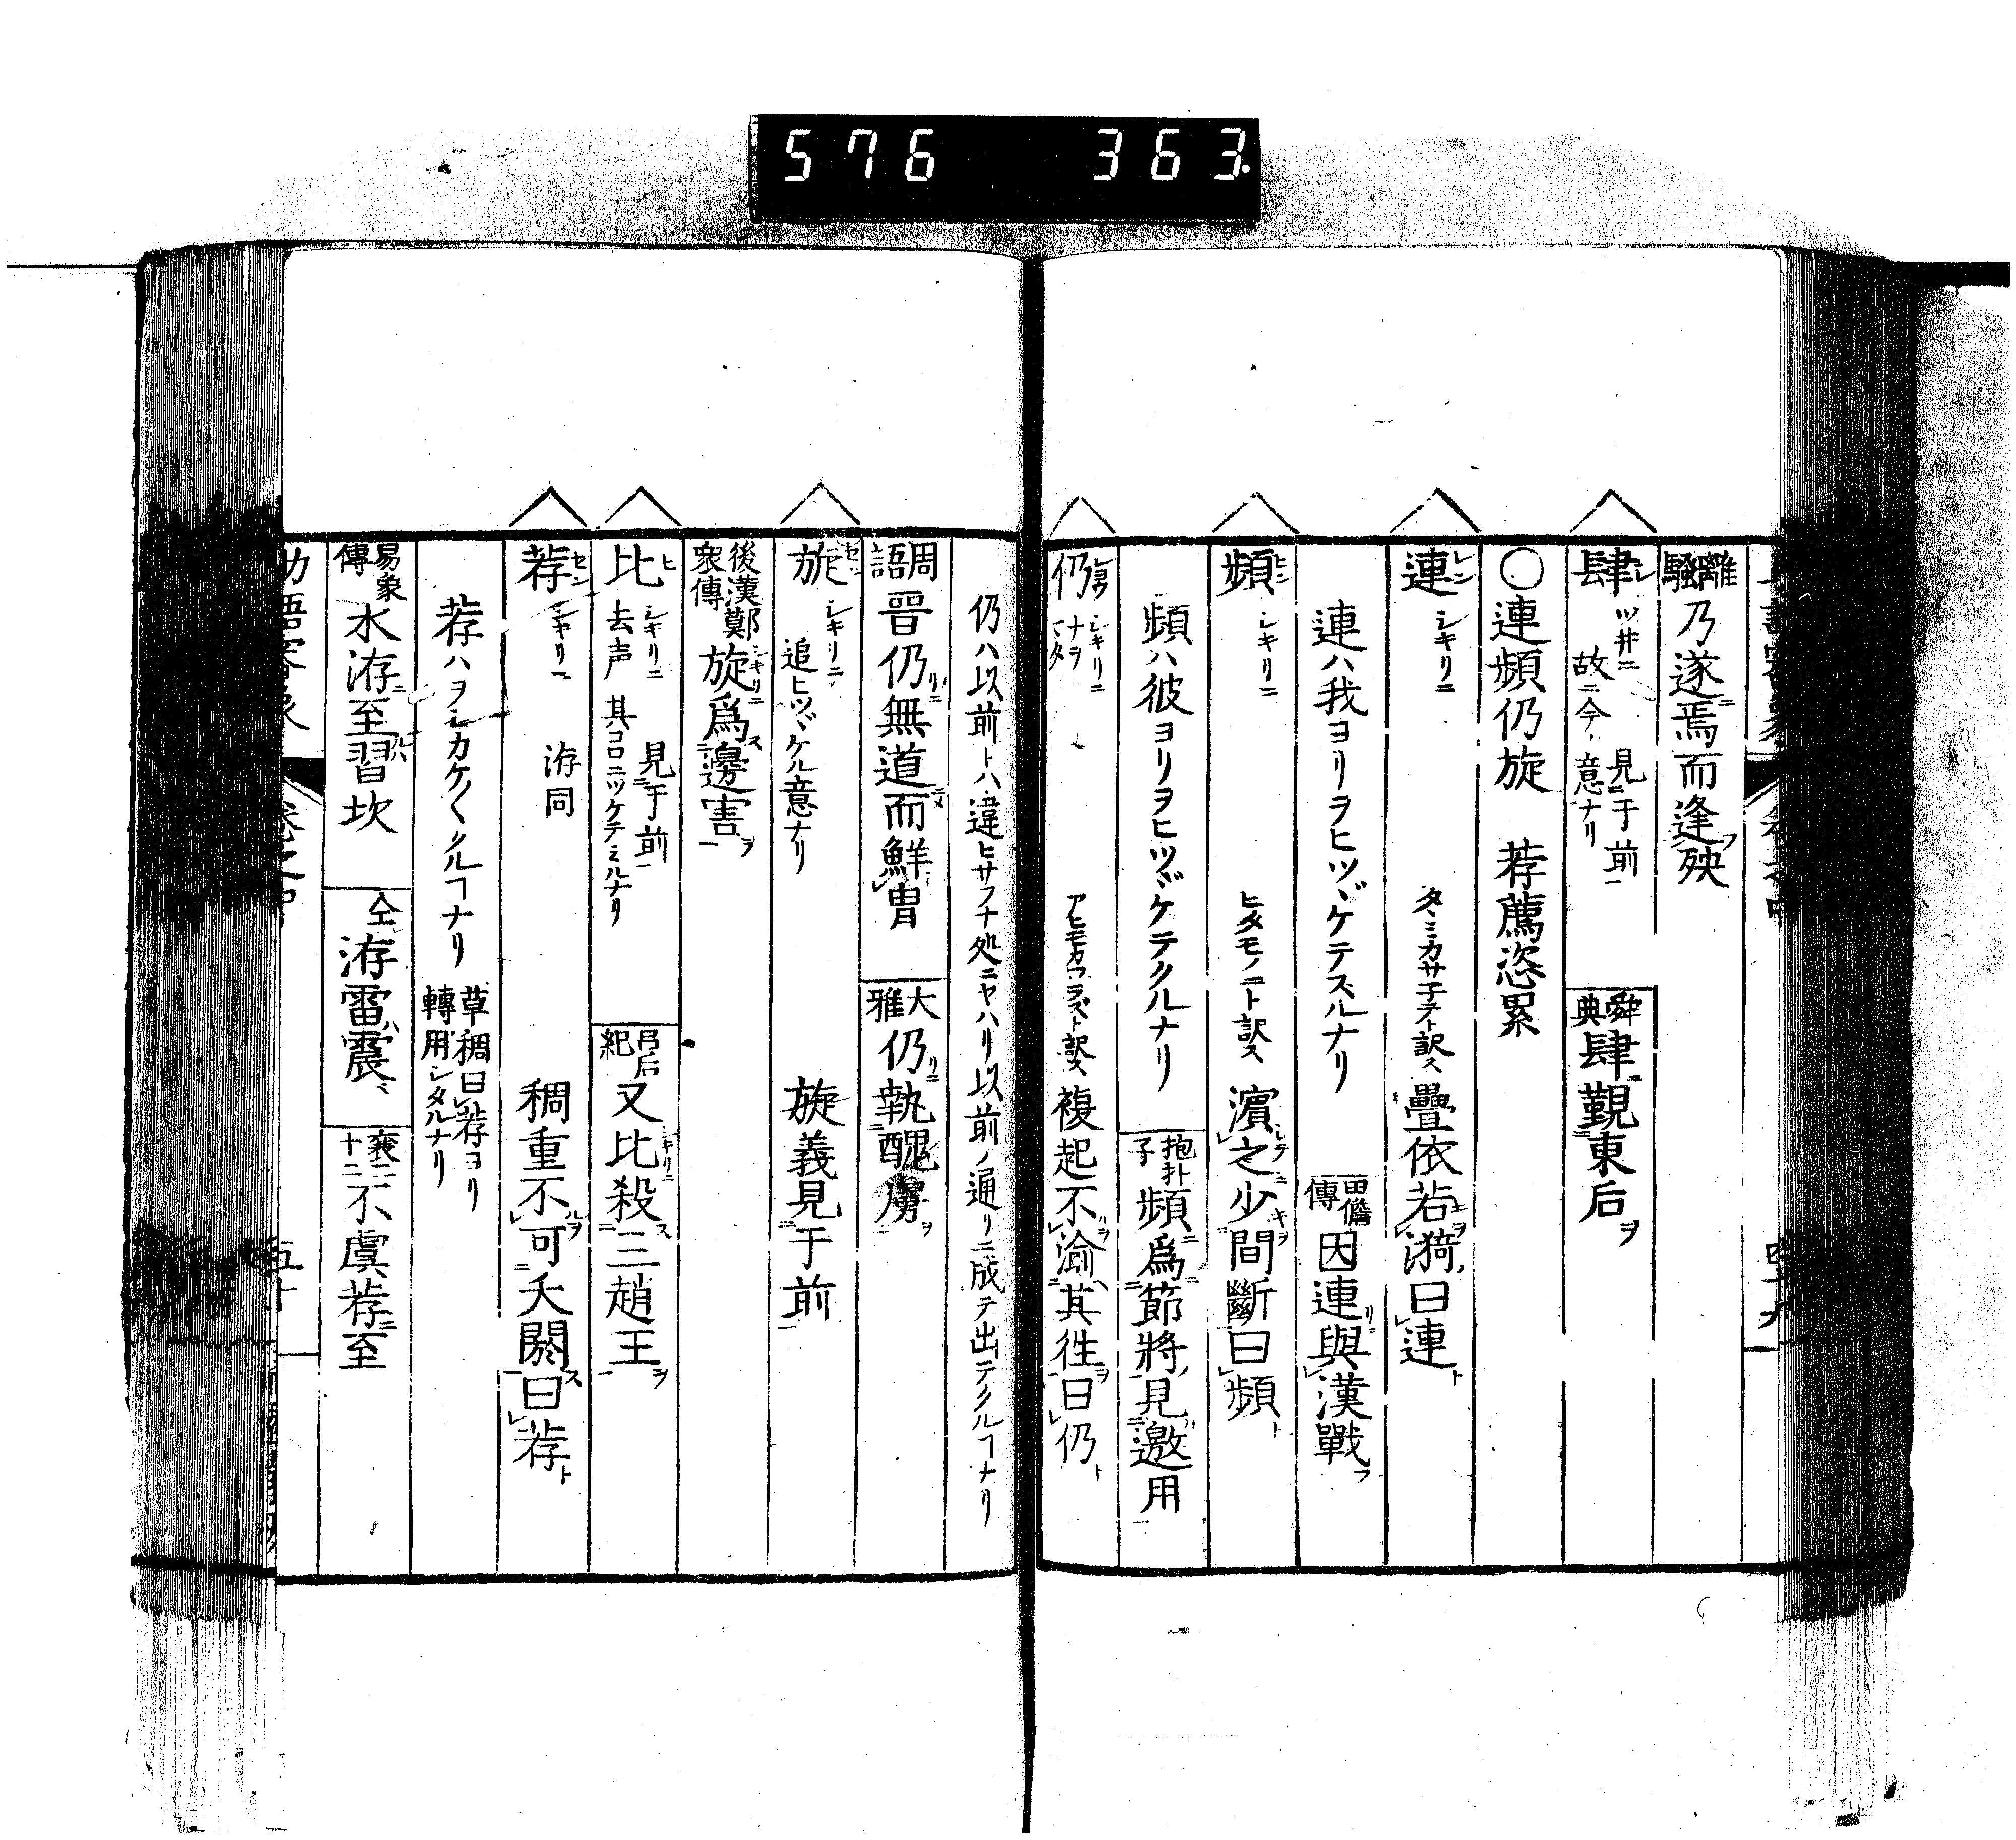 576 363.
離騷 乃遂焉而逢殃
肆 シ ツ井ニ 見于前 故ニ今ノ意ナリ 舜典 肆覲東后ヲ
○連頻仍旋 荐薦恣累
連 レン シキリニ タヽミカサ子テト訳ス 疊依若漪曰連ト
連ハ我ヨリヲヒツヾケテスルナリ 田儋傳 因連與漢戰フ
頻 ヒン シキリニ ヒタモノニト訳ス 濵之少間斷曰頻ト
頻ハ彼ヨリヲヒツヾケテクルナリ 抱朴子 頻爲節將見邀用
仍 シキリニ ナヲ マタ アヒモカワラズト訳ス 複起不渝其徃曰仍ト
仍ハ以前トハ違ヒサフナ処ニヤハリ以前ノ通リニ成テ出テクルヿナリ
周語 晉仍無道而鮮冑 大雅 仍執醜虜ヲ
旋 セン シキリニ 追ヒツヾケル意ナリ 旋義見于前
後漢鄭衆傳 旋爲邊害ヲ
比 ヒ シキリニ 去声 見于前 其コロニツケテミルナリ 呂后紀 又比殺三趙王ヲ
荐 セン シキリニ 洊同 稠重不可夭閼曰荐ト
荐ハヲシカケ〱クルヿナリ 草稠曰荐ヨリ轉用シタルナリ
易象傳 水洊至習坎 仝 洊雷震 襄二十二 不虞荐至
五十